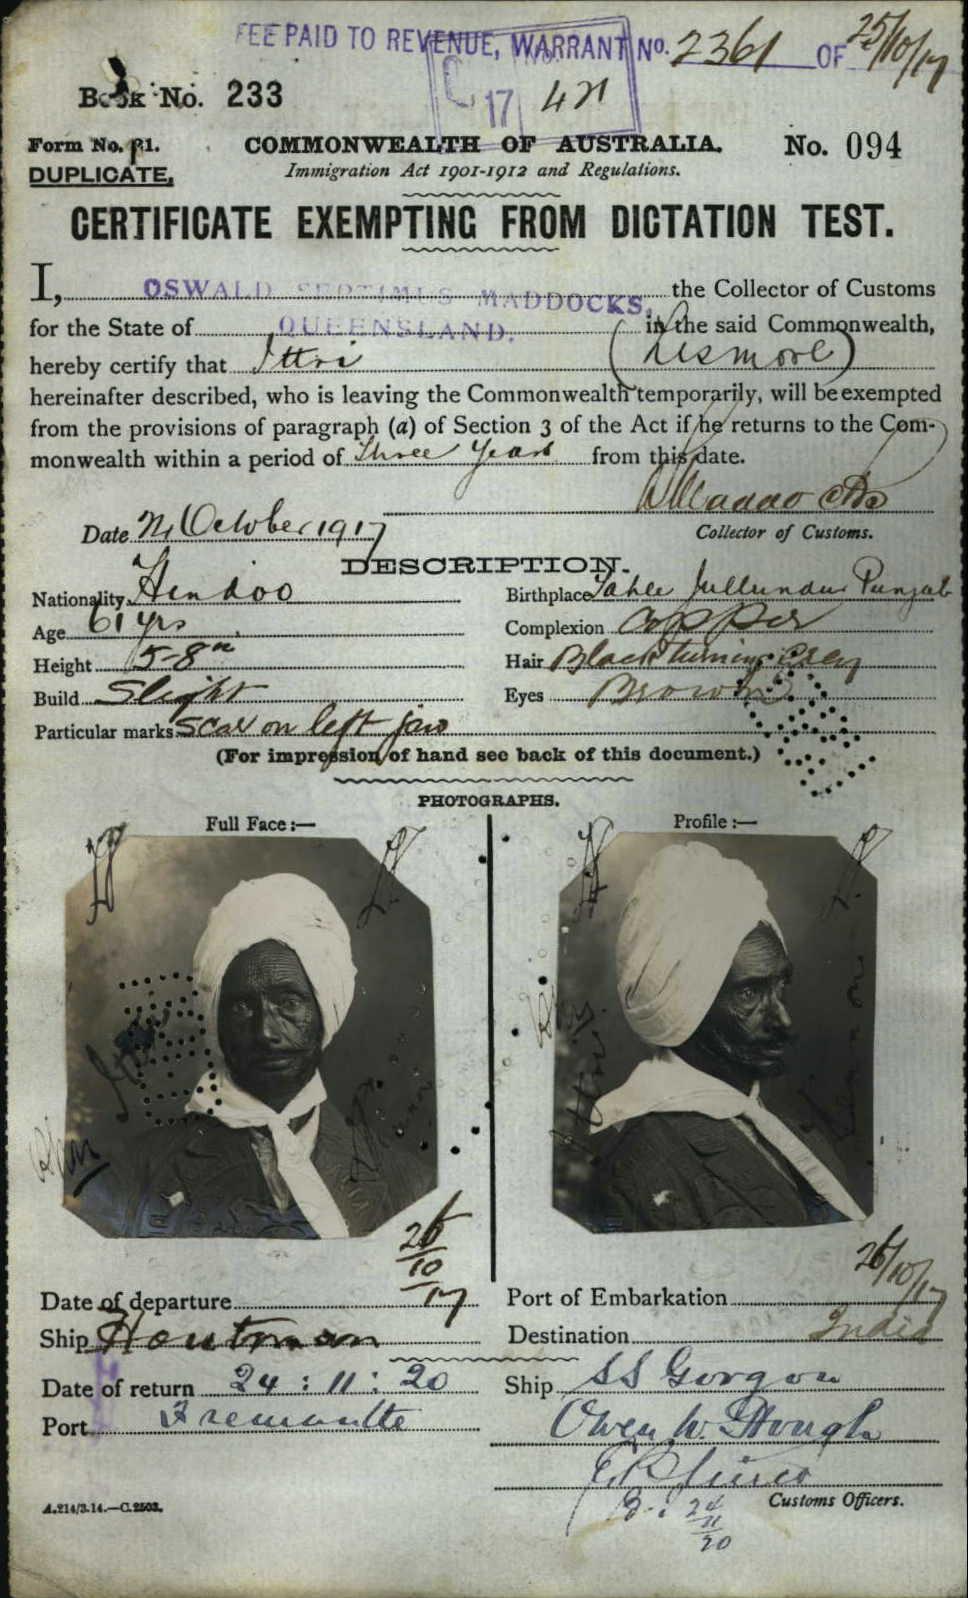 FEE PAID TO REVENUE, WARRANT No. 2361 OF 25/10/17
C 17 421
Book No. 233
Form No. 21. COMMONWEALTH OF AUSTRALIA. No. 094
DUPLICATE. Immigration Act 1901-1912 and Regulations.
CERTIFICATE EXEMPTING FROM DICTATION TEST.
I, OSWALD SEPTIMUS MADDOCKS, the Collector of Customs
for the State of QUEENSLAND. in the said Commonwealth,
hereby certify that Ittri (Lismore)
hereinafter described, who is leaving the Commonwealth temporarily, will be exempted
from the provisions of paragraph (a) of Section 3 of the Act if he returns to the Com-
monwealth within a period of Three Years from this date.
Date October 1917 Collector of Customs.
DESCRIPTION.
Nationality Hindoo Birthplace Jullundur Punjab
Age 61 yrs Complexion Copper
Height 5-8" Hair Black turning Grey
Build Slight Eyes Brown
Particular marks Scar on left jaw
(For impression of hand see back of this document.)
PHOTOGRAPHS.
Full Face:— Profile:—
26/10/17 26/10/17
Date of departure Port of Embarkation
Ship Houtman Destination India
Date of return 24:11:20 Ship SS Gorgon
Port Fremantle Owen W.
Customs Officers.
24/11/20
A.214/3.14.—C.2503.